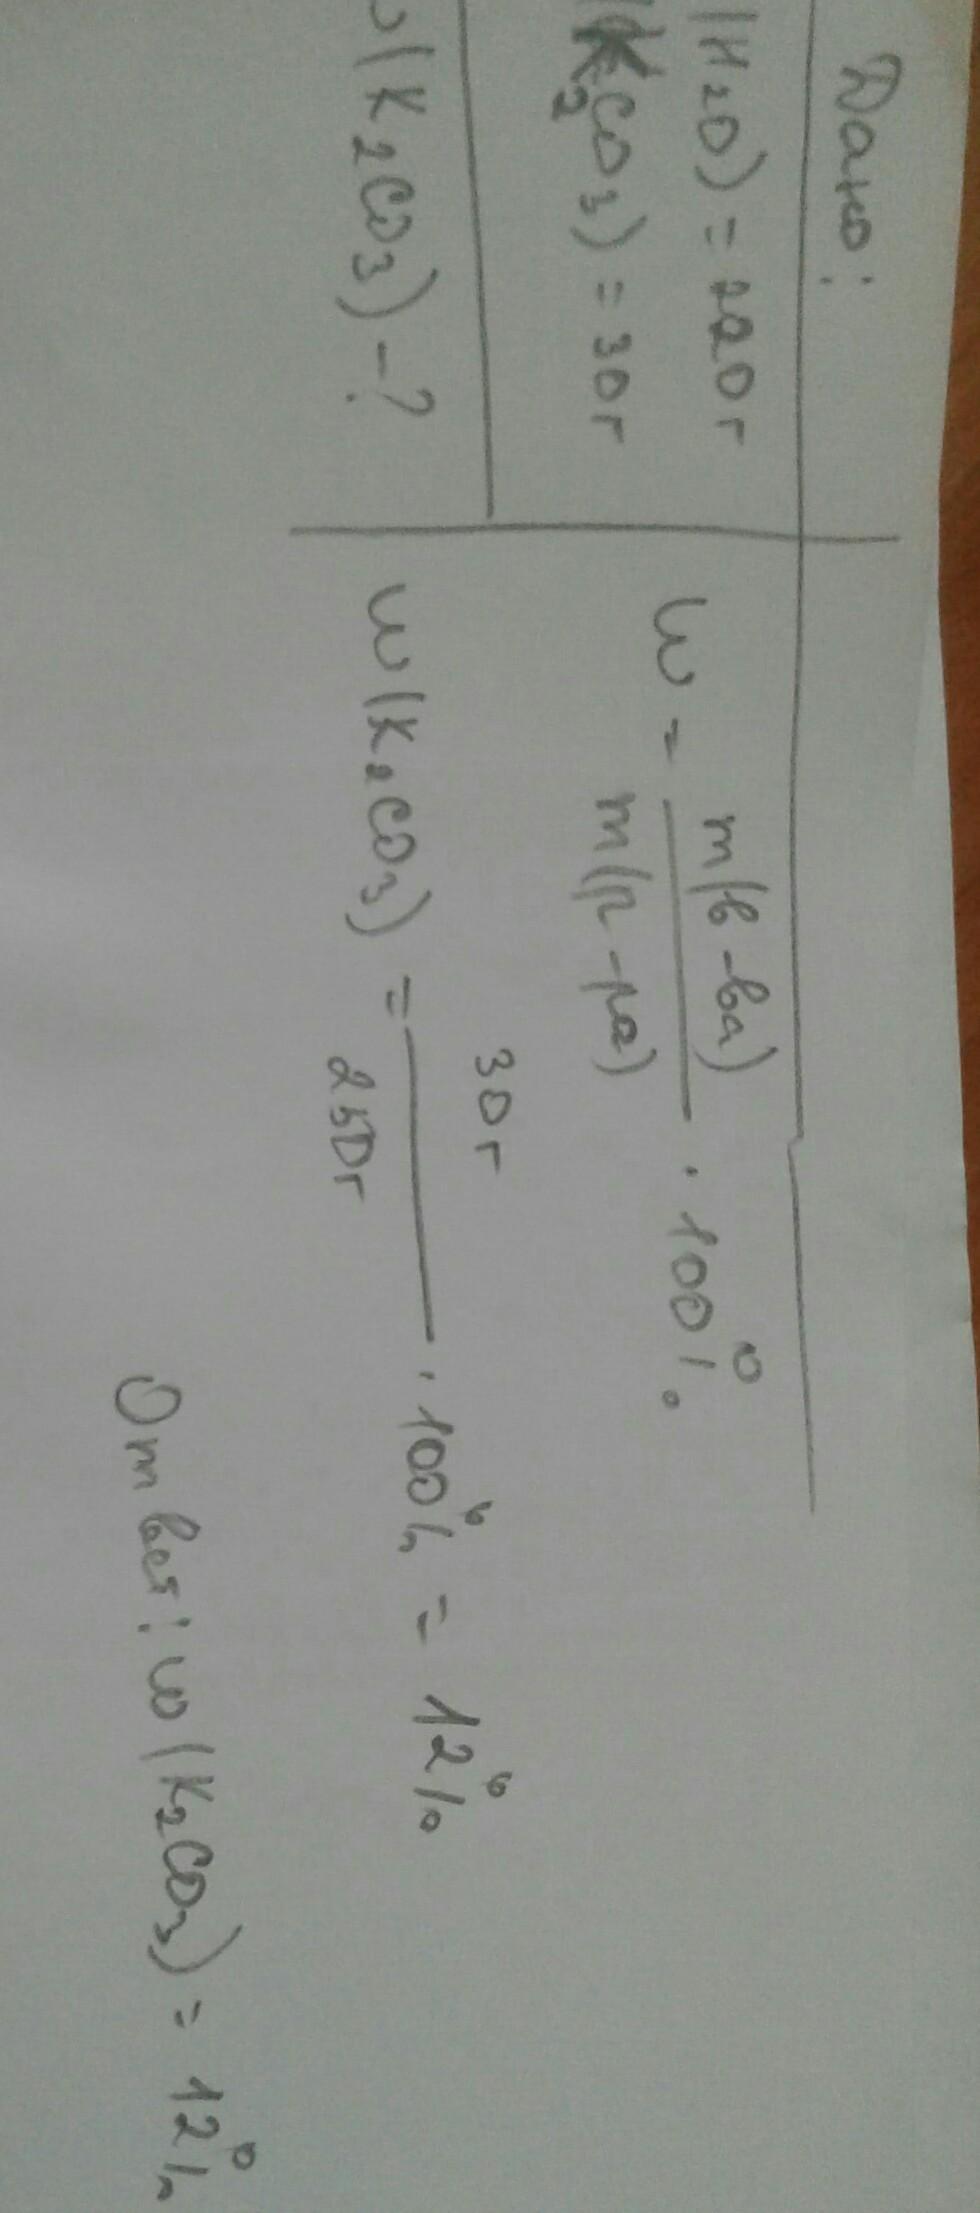 Дано:
(H₂O) = 220г
(K₂CO₃) = 30г
ω(K₂CO₃) - ?
ω = m(в-ва) / m(р-ра) · 100%
ω(K₂CO₃) = 30г / 250г · 100% = 12%
Ответ: ω(K₂CO₃) = 12%